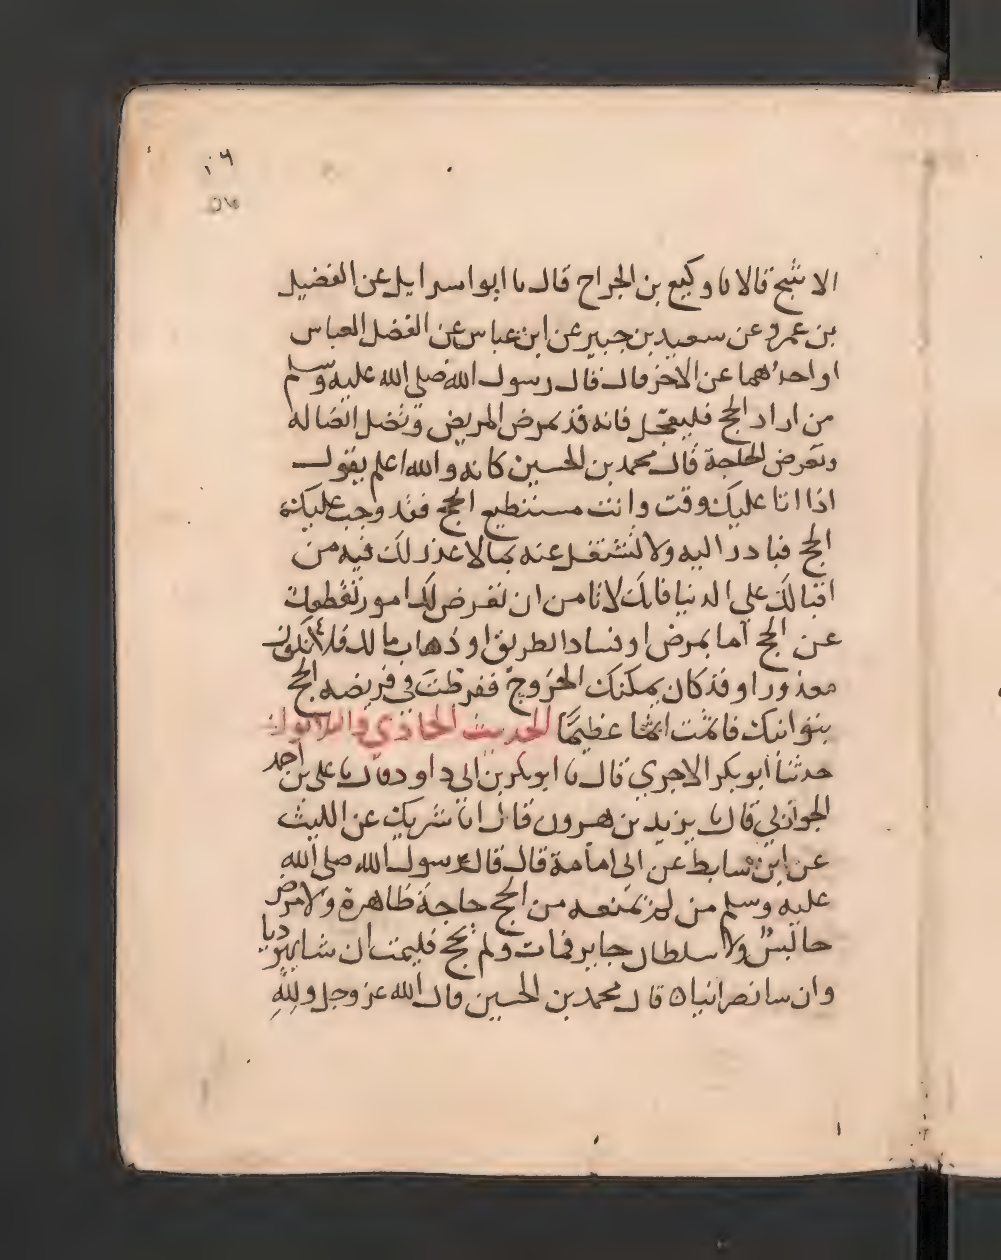 الاشج قالا نا وكيع بن الجراح قال نا ابو اسرايل عن الفضيل
بن عمرو عن سعيد بن جبير عن ابن عباس عن الفضل العباس
او احدهما عن الاخر قال قال رسول الله صلى الله عليه وسلم
من اراد الحج فليعجل فانه قد يمرض المريض وتضل الضاله
وتعرض الحاجة قال محمد بن الحسين كانه والله اعلم يقول
اذا اتا عليك وقت وانت مستطيع الحج فقد وجب عليك
الحج فبادر اليه ولا تشتغل عنه بما لا عذر لك فيه من
اقبالك علي الدنيا فانك لا تامن ان تعرض لك امور تقطعك
عن الحج اما بمرض او فساد الطريق او ذهاب مالك فلا تكون
معذورا وقد كان يمكنك الخروج ففرطت في فريضه الحج
بتوانيك فاثمت اثما عظيما الحديث الحادي والثلاثون
حدثنا ابو بكر الاجري قال نا ابو بكر بن ابي داود قال نا علي بن احمد
قال نا يزيد بن هرون قال انا شريك عن الليث
عن ابن سابط عن ابي امامة قال قال رسول الله صلى الله
عليه وسلم من لم تمنعه من الحج حاجة ظاهرة ولا مرض
حابس ولا سلطان جاير فمات ولم يحج فليمت ان شا يهوديا
وان شا نصرانيا ٥ قال محمد بن الحسين قال الله عز وجل ولله